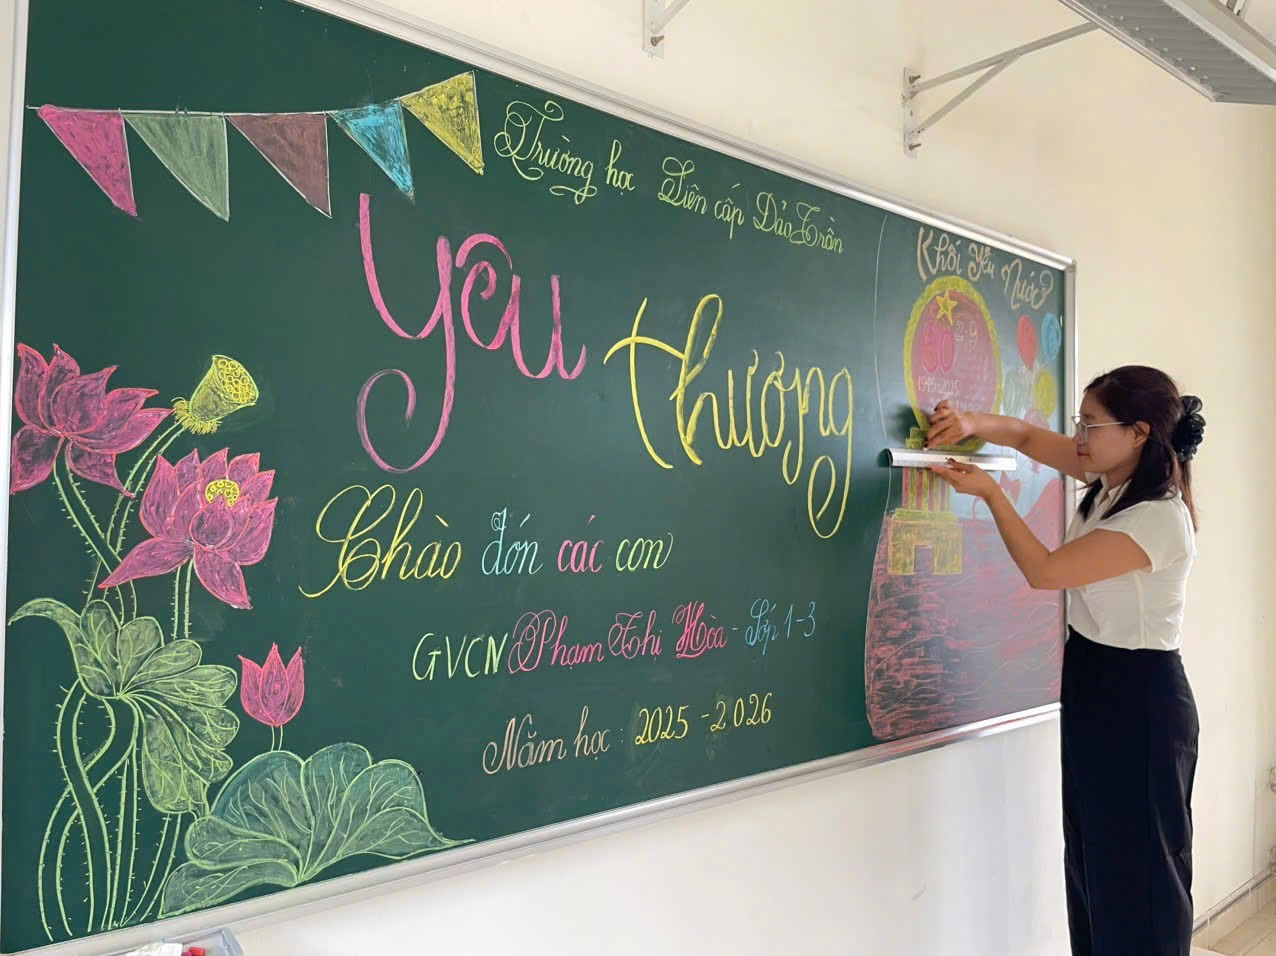 Trường học Liên cấp Đào Trần
Yêu
thương
Chào đón các con
GVCN Phạm Thị Hòa - Lớp 1-3
Năm học : 2025 - 2026
Khối Yêu Nước
80 2-9
1945-2025